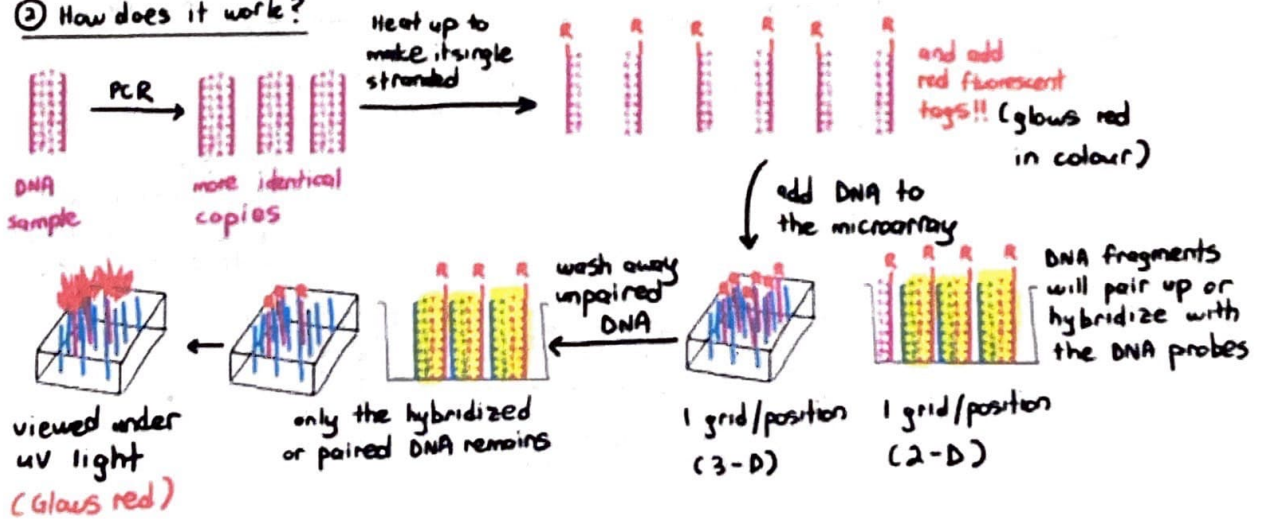 ② How does it work?
PCR
Heat up to
make it single
stranded
R R R R R R
and add
red fluorescent
tags!! (glows red
in colour)
DNA
sample
more identical
copies
add DNA to
the microarray
R R R R
DNA fragments
will pair up or
hybridize with
the DNA probes
1 grid/position
(3-D)
1 grid/position
(2-D)
wash away
unpaired
DNA
R R R
only the hybridized
or paired DNA remains
viewed under
uv light
(Glows red)